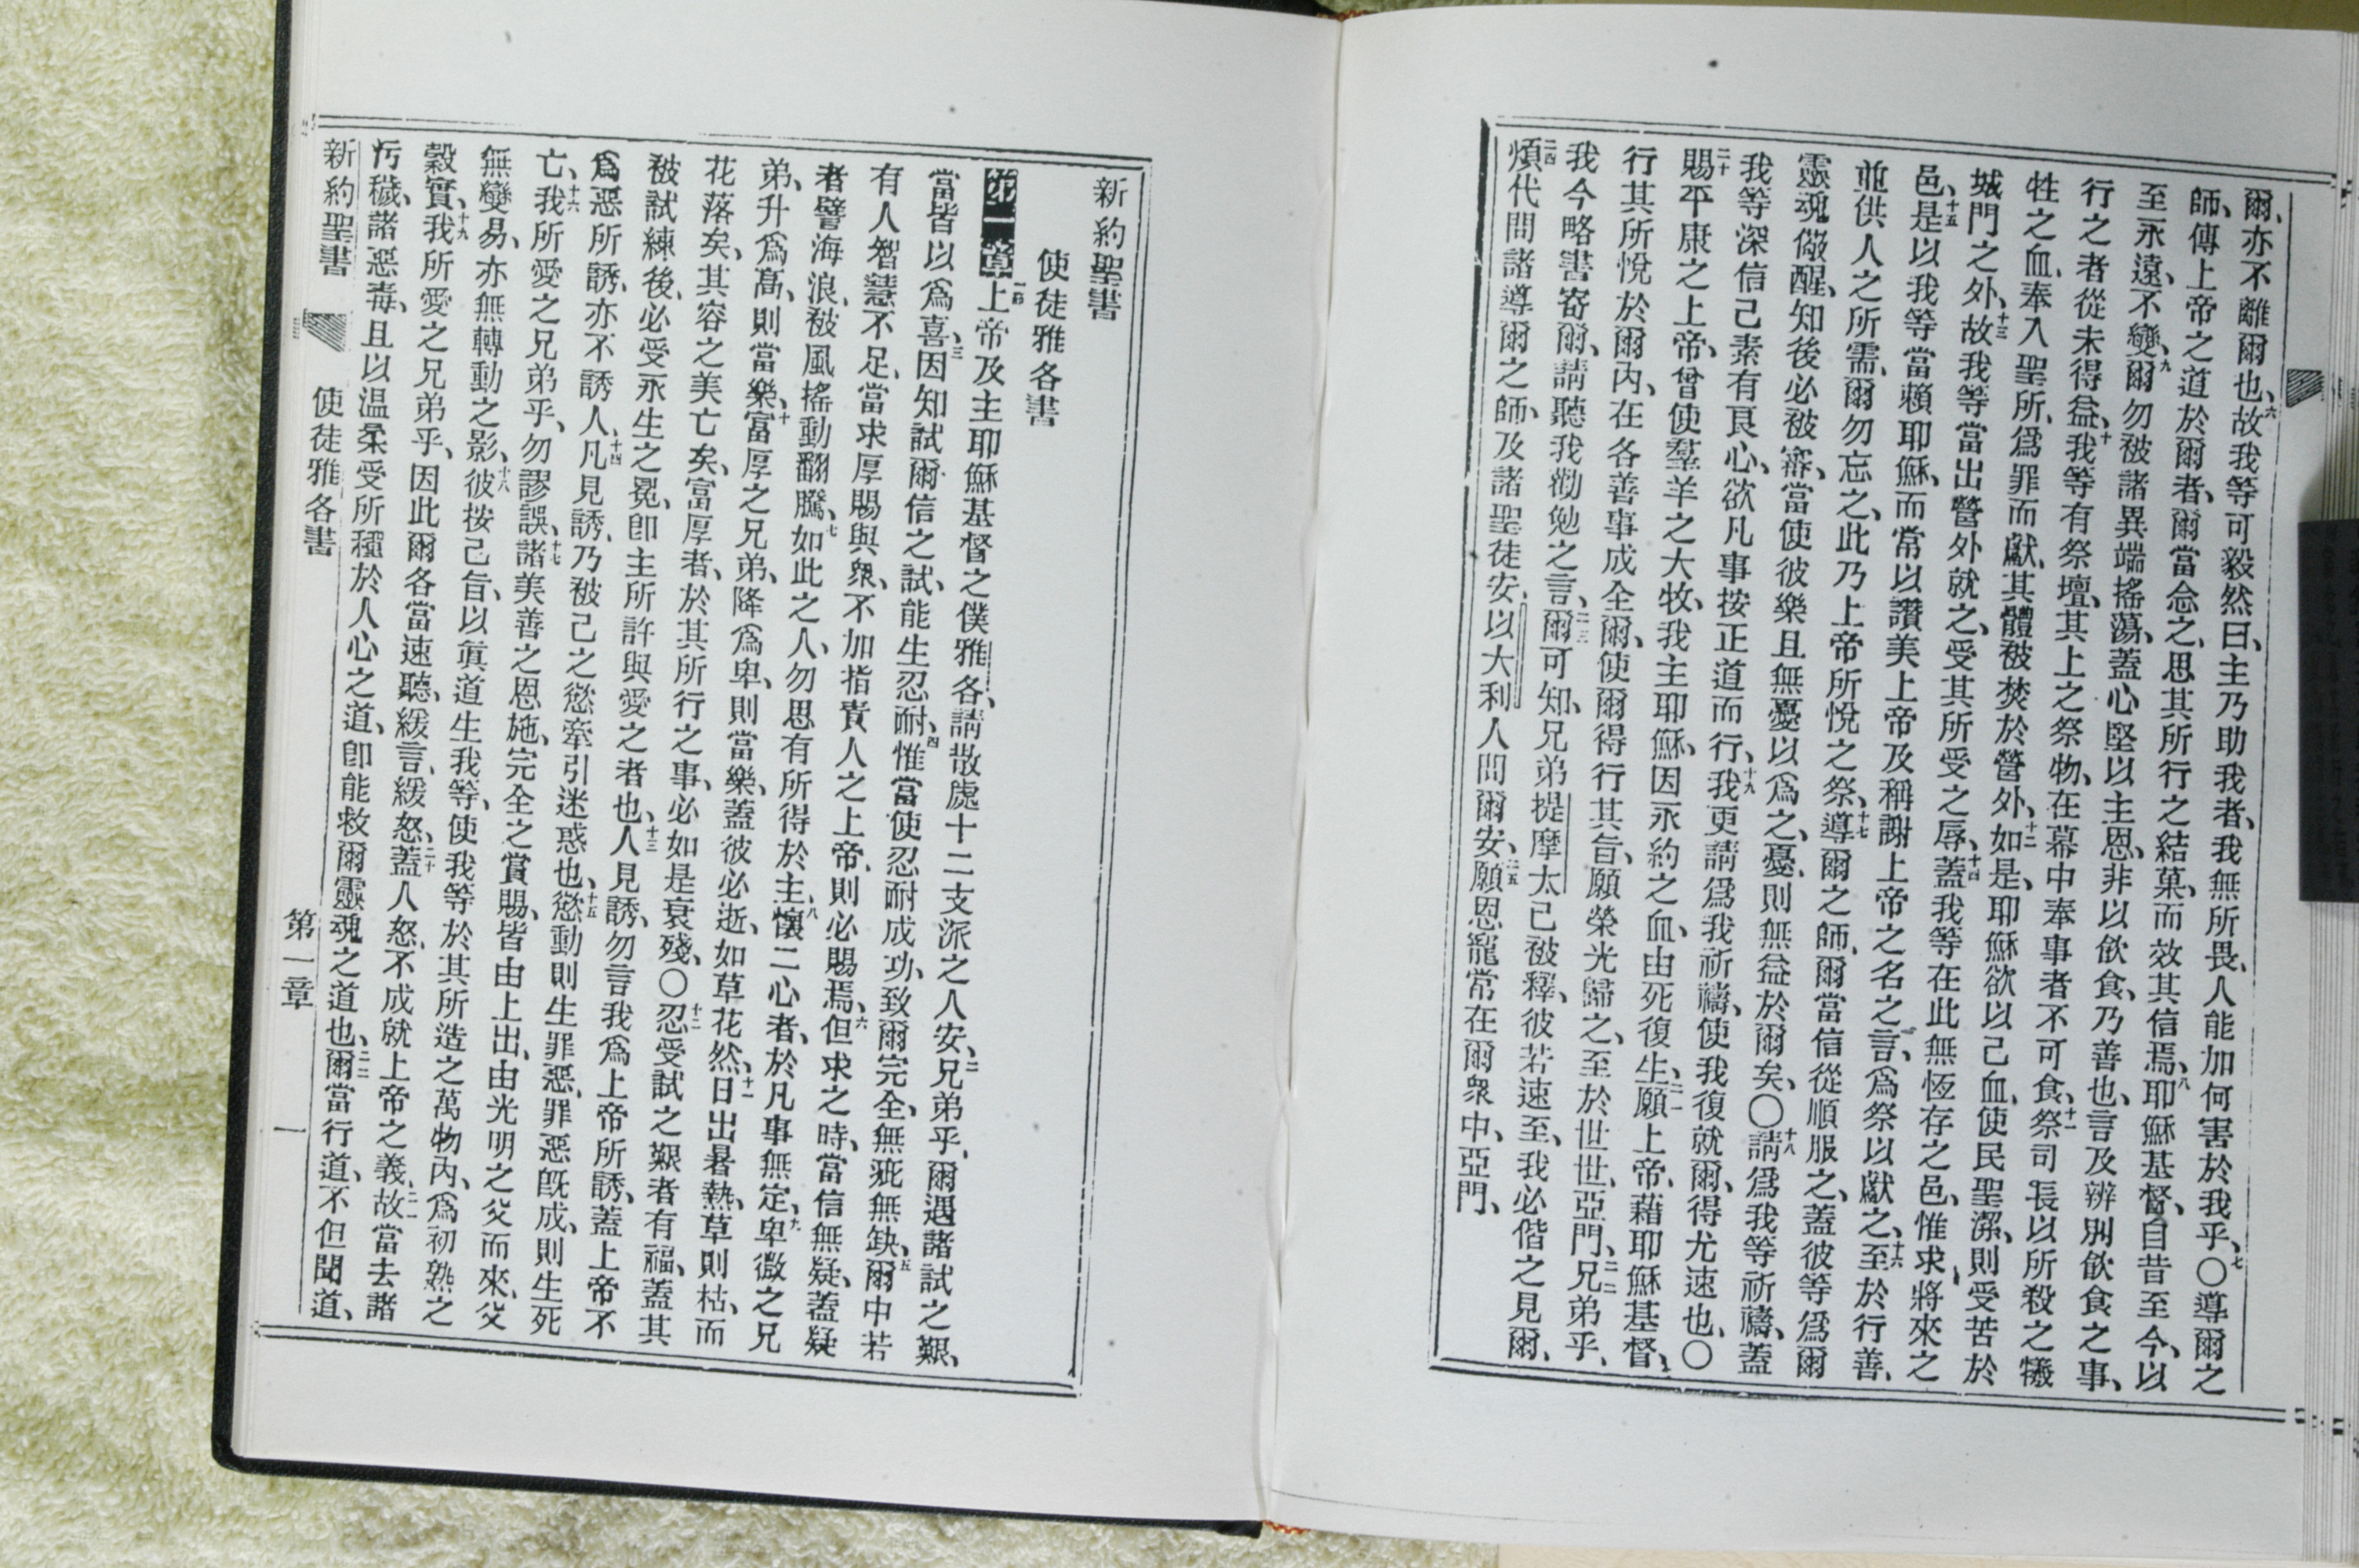 爾、亦不離爾也、六故我等可毅然曰、主乃助我者、我無所畏、人能加何害於我乎、七〇導爾之
師、傳上帝之道於爾者、爾當念之、思其所行之結菓、而效其信焉、八耶穌基督、自昔至今、以
至永遠、不變、九爾勿被諸異端搖蕩、蓋心堅以主恩、非以飲食、乃善也、言及辨別飲食之事、
行之者從未得益、十我等有祭壇、其上之祭物、在幕中奉事者不可食、十一祭司長以所殺之犧
牲之血、奉入聖所、爲罪而獻、其體被焚於營外、十二如是、耶穌欲以己血、使民聖潔、則受苦於
城門之外、十三故我等當出營外就之、受其所受之辱、十四蓋我等在此無恆存之邑、惟求將來之
邑、十五是以我等當賴耶穌、而常以讚美上帝及稱謝上帝之名之言、爲祭以獻之、十六至於行善、
並供人之所需、爾勿忘之、此乃上帝所悅之祭、十七導爾之師、爾當信從順服之、蓋彼等爲爾
靈魂儆醒、知後必被審、當使彼樂且無憂以爲之、憂、則無益於爾矣、〇十八請爲我等祈禱、蓋
我等深信己素有良心、欲凡事按正道而行、十九我更請爲我祈禱、使我復就爾、得尤速也、〇
二十賜平康之上帝、曾使羣羊之大牧、我主耶穌、因永約之血、由死復生、二一願上帝、藉耶穌基督、
行其所悅於爾內、在各善事成全爾、使爾得行其旨、願榮光歸之、至於世世、亞門、二二兄弟乎、
我今略書寄爾、請聽我勸勉之言、二三爾可知、兄弟提摩太已被釋、彼若速至、我必偕之見爾、
二四煩代問諸導爾之師、及諸聖徒安、以大利人問爾安、二五願恩寵常在爾衆中、亞門、
新約聖書
使徒雅各書
第一章一節上帝及主耶穌基督之僕雅各、請散處十二支派之人安、二兄弟乎、爾遇諸試之艱、
當皆以爲喜、三因知試爾信之試、能生忍耐、四惟當使忍耐成功、致爾完全、無疵無缺、五爾中若
有人智慧不足、當求厚賜與衆、不加指責人之上帝、則必賜焉、六但求之時、當信無疑、蓋疑
者譬海浪、被風搖動翻騰、七如此之人、勿思有所得於主、八懷二心者、於凡事無定、九卑微之兄
弟、升爲高、則當樂、十富厚之兄弟、降爲卑、則當樂、蓋彼必逝、如草花然、十一日出暑熱、草則枯、而
花落矣、其容之美亡矣、富厚者、於其所行之事、必如是衰殘、〇十二忍受試之艱者有福、蓋其
被試練後、必受永生之冕、卽主所許與愛之者也、十三人見誘、勿言我爲上帝所誘、蓋上帝不
爲惡所誘、亦不誘人、十四凡見誘、乃被己之慾牽引迷惑也、十五慾動則生罪惡、罪惡旣成、則生死
亡、十六我所愛之兄弟乎、勿謬誤、十七諸美善之恩施、完全之賞賜、皆由上出、由光明之父而來、父
無變易、亦無轉動之影、十八彼按己旨、以眞道生我等、使我等於其所造之萬物內、爲初熟之
穀實、十九我所愛之兄弟乎、因此爾各當速聽、緩言、緩怒、二十蓋人怒、不成就上帝之義、二一故當去諸
污穢、諸惡毒、且以温柔受所種於人心之道、卽能救爾靈魂之道也、二二爾當行道、不但聞道、
新約聖書 使徒雅各書 第一章 一